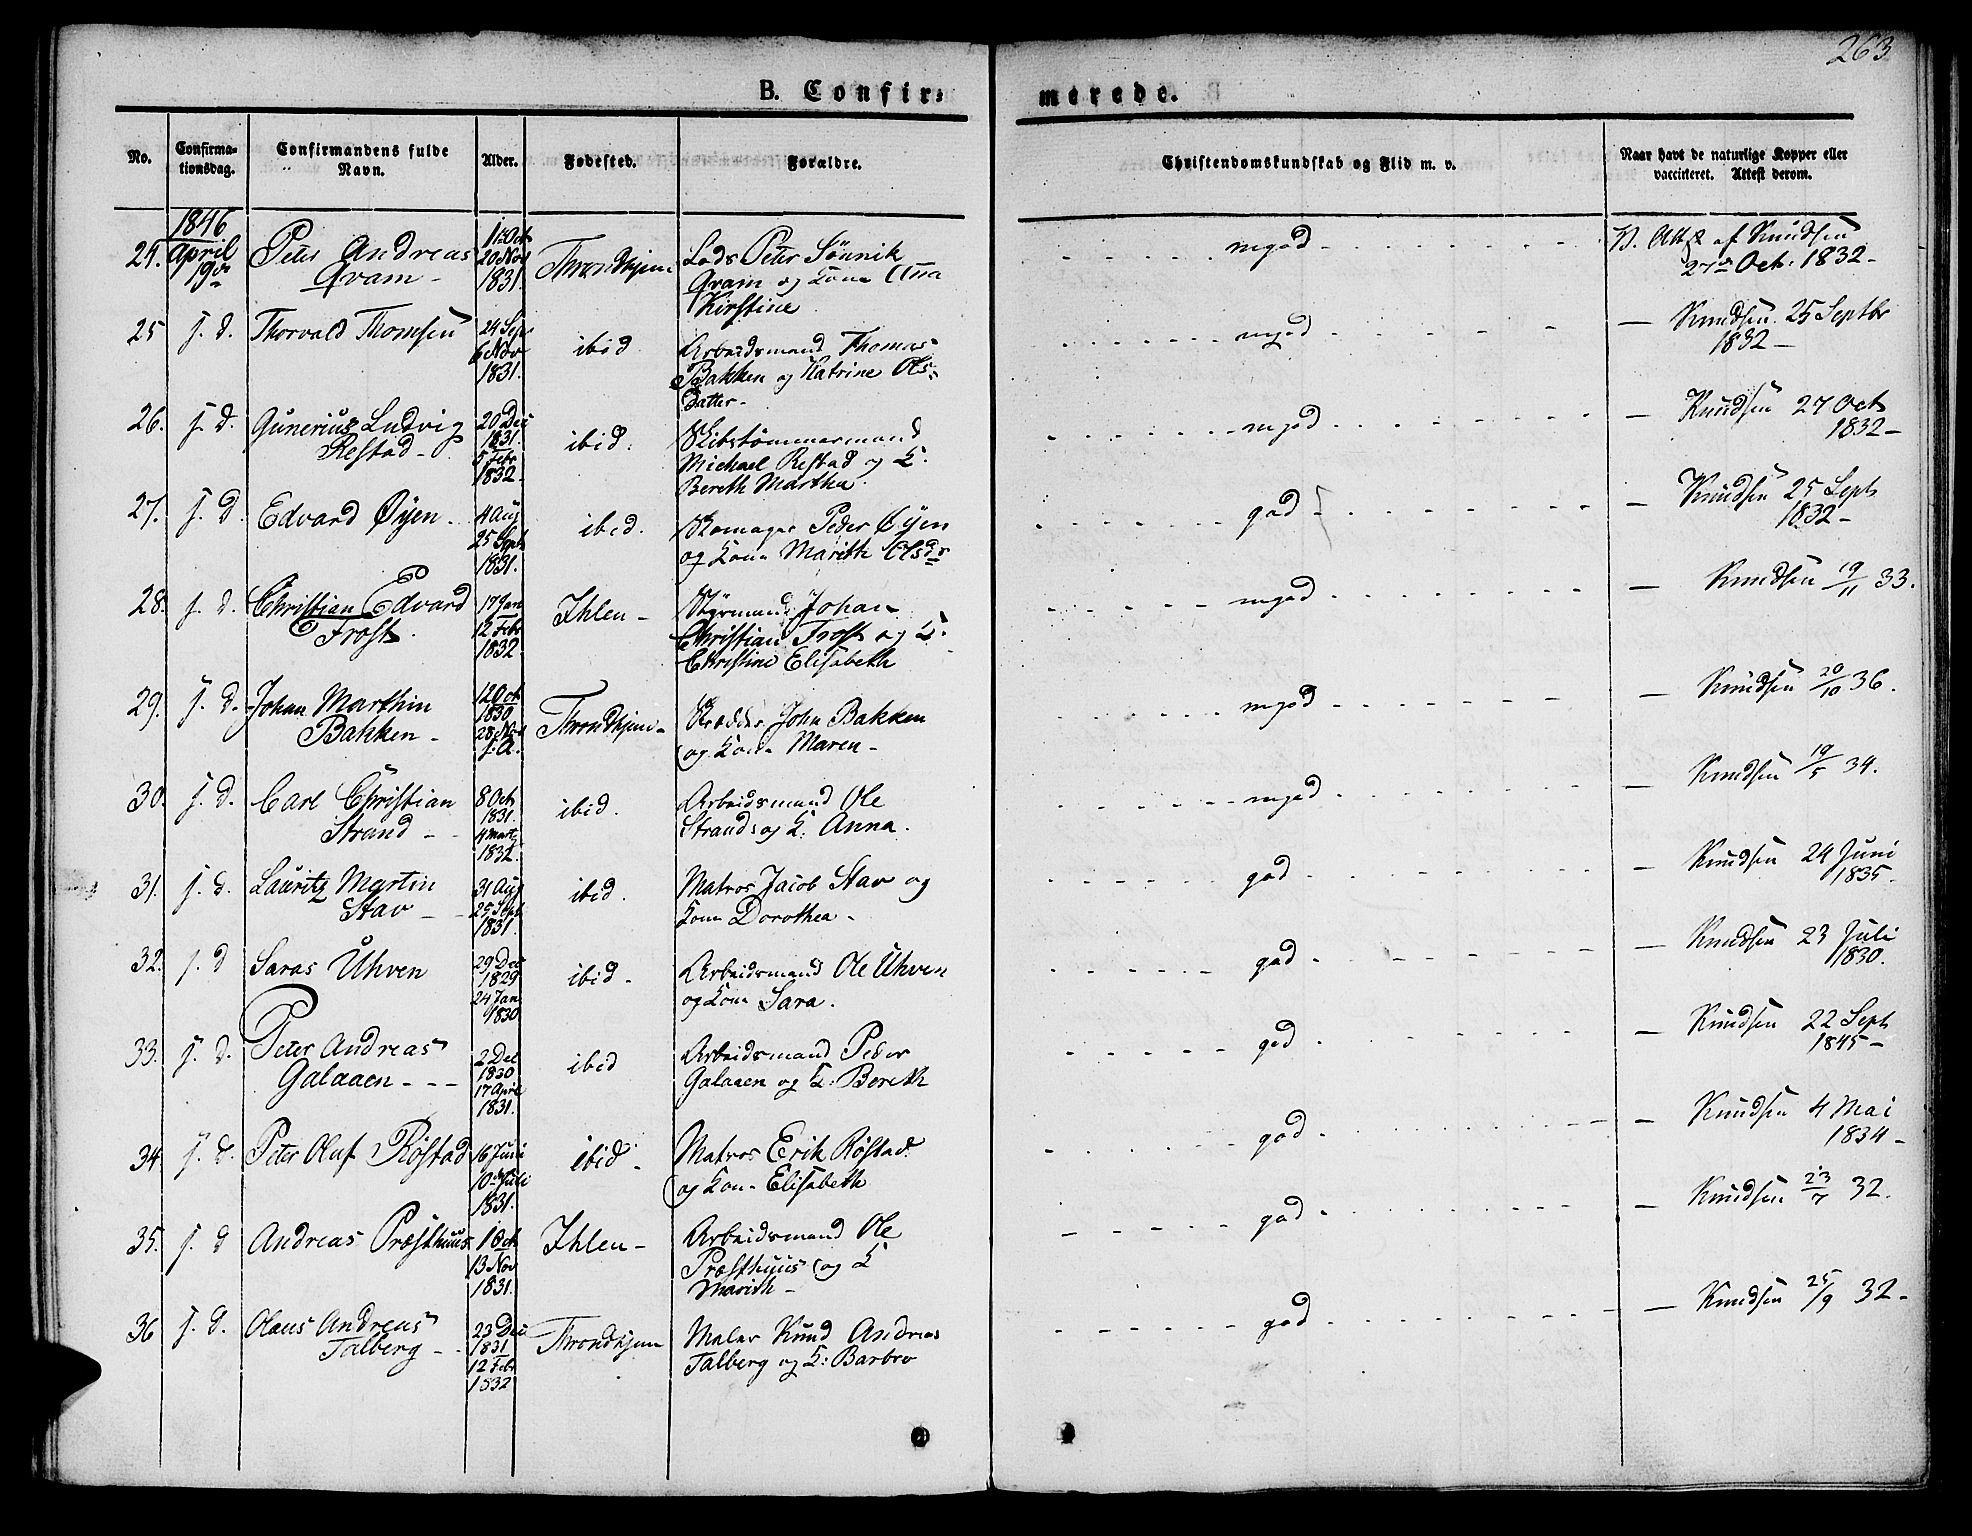 263
B. Confir=
merede.
No.
Confirma-
tionsdag.
Confirmandens fulde
Navn.
Alder.
Fødested.
Forældre.
Christendomskundskab og Flid m. v.
Naar havt de naturlige Kopper eller
vaccineret. Attest derom.
1846
April
19de
Peter Andreas
Qvam -
20 Nov
1831.
Throndhjem
Lods Peter Sönnik
Qvam og Kone Ana
Kirstine
mgod
V. Att. af Knudsen
27de Oct. 1832-
25 s. d. Thorvald Thomsen
24 Sept
6 Nov
1831.
ibid.
Arbeidsmand Thomas
Bakken og Katrine Ols-
datter-
mgod
- Knudsen 25 Septbr
1832-
26. s. d. Gunerius Ludvig
Restad -
20 Dec
1831.
5 Febr
1832-
ibid.
Skibstömmermand
Michael Restad og K.
Bereth Martha
mgod
- Knudsen 27 Oct
1832-
27. s. d. Edvard Øyen
4 Aug
25 Sept
1831.
ibid.
Skomager Peder Öyen
og Kone Marith Olsdr
god
- Knudsen 25 Sept
1832-
28. s. d. Christian Edvard
Frost.
17 Jan
12 Febr
1832
Ihlen -
Styrmand Johan
Christian Frost og K.
Christine Elisabeth
mgod
- Knudsen 19/11 33.
29. s. d. Johan Marthin
Bakken -
12 Oct
1830
28 Nov
s. A.
Throndhjem -
Skrædder John Bakken
og Kone Maren -
mgod
- Knudsen 20/10 36.
30. s. d. Carl Christian
Strand -
8 Oct
1831.
4 Marts
1832.
ibid.
Arbeidsmand Ole
Strand og K: Anna.
mgod
- Knudsen 19/5 34.
31. s. d. Lauritz Martin
Stav -
31 Aug
25 Sept
1831.
ibid.
Matros Jacob Stav og
Kone Dorothea -
god
- Knudsen 24 Juni
1835-
32. s. d Saras Uhven
29 Dec
1829
24 Jan
1830
ibid -
Arbeidsmand Ole Uhven
og Kone Sara.
god
- Knudsen 23 Juli
1830.
33. s. d. Peter Andreas
Galaaen - - -
2 Dec
1830
17 April
1831.
ibid
Arbeidsmand Peder
Galaaen og K: Bereth
god
- Knudsen 22 Sept
1845-
34 s. d. Peter Oluf Røstad
16 Juni
10de Juli
1831.
ibid -
Matros Erik Røstad
og Kone Elisabeth
god
- Knudsen 4 Mai
1834-
35. s. d Andreas Præsthuus
1 Oct
13 Nov
1831.
Ihlen -
Arbeidsmand Ole
Præsthuus og K
Marith -
god
- Knudsen 23/7 32.
36 s. d. Olaus Andreas
Talberg -
23 Dec
1831
12 Febr
1832
Throndhjem
Maler Knud Andreas
Talberg og K: Barbro
god
- Knudsen 25/9 32-